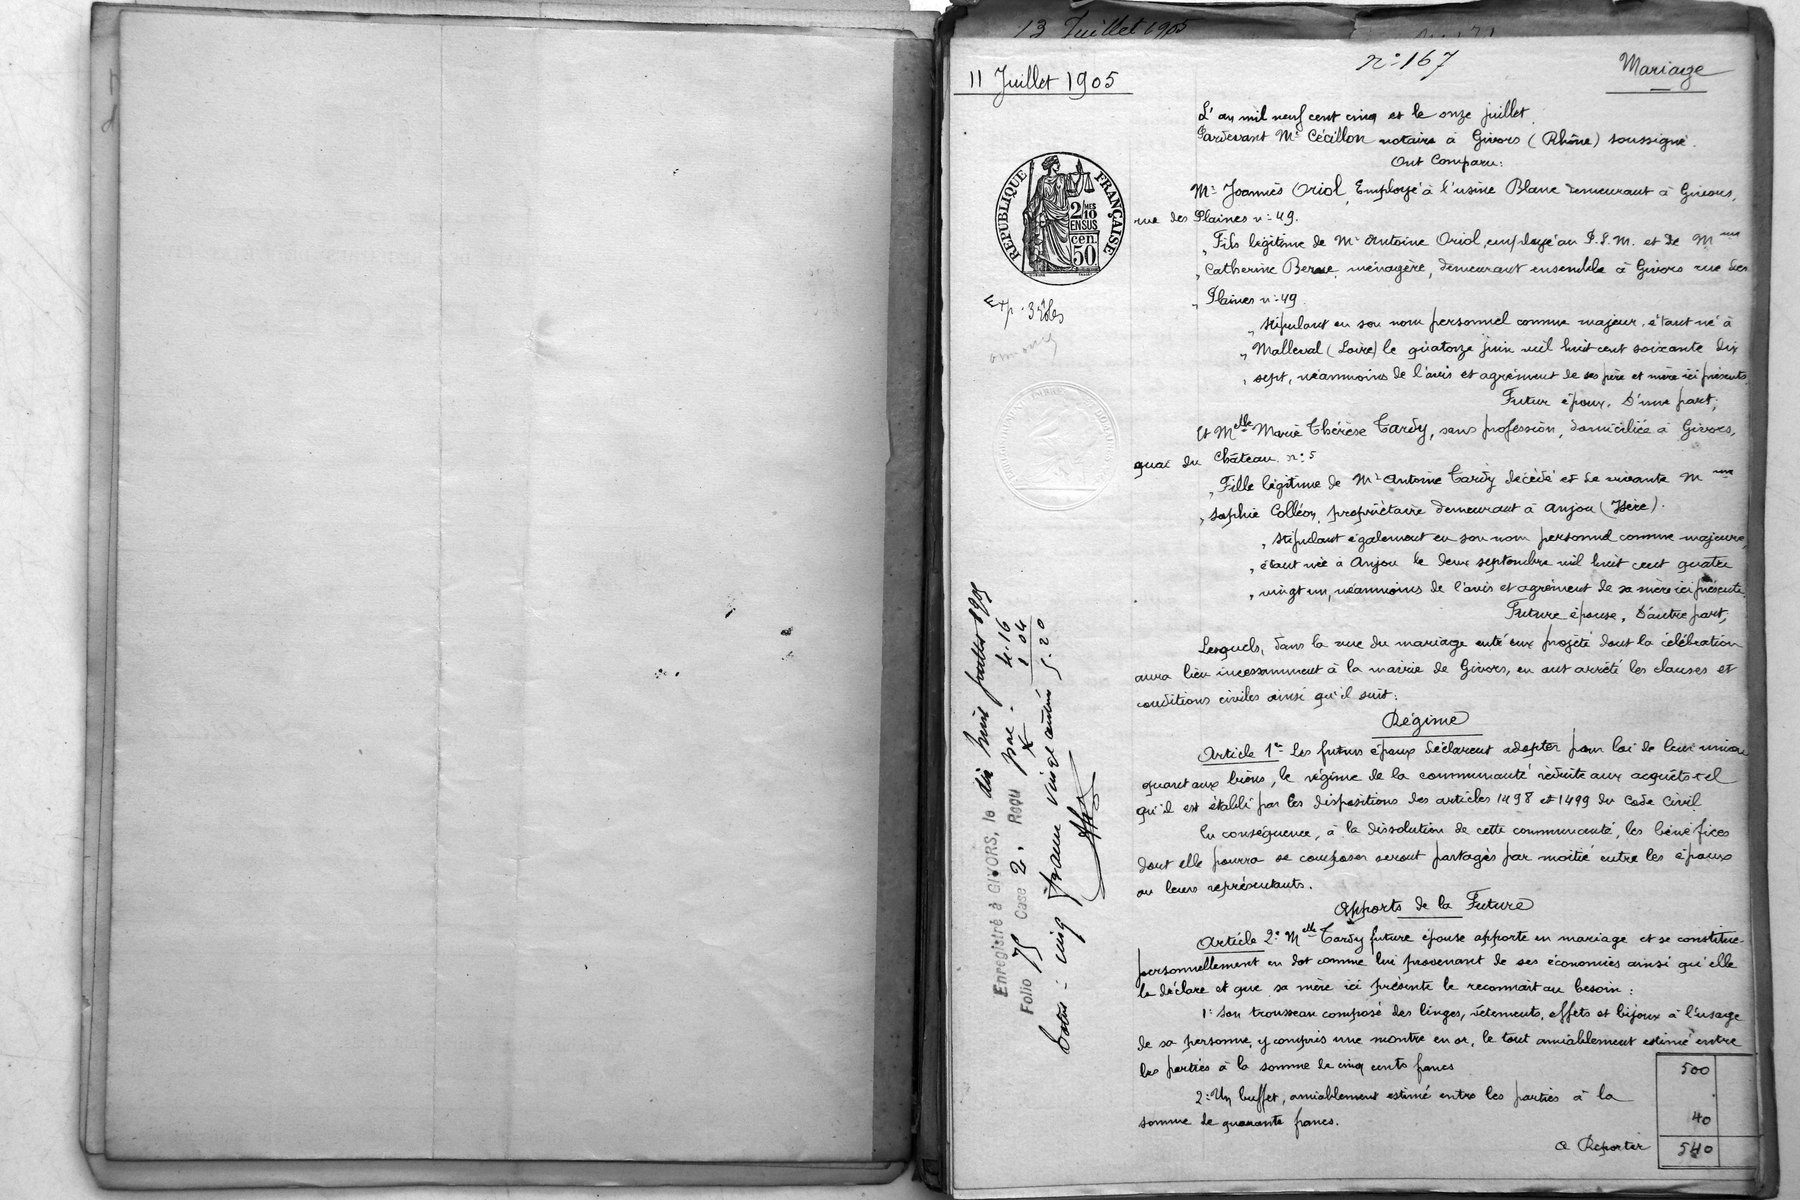 13 Juillet 1905
n: 167
Mariage
11 Juillet 1905
L'an mil neuf cent cinq et le onze juillet.
Pardevant Me Cécillon notaire à Givors (Rhône) soussigné.
Ont Comparu:
Mr Joannès Oriol, Employé à l'usine Blanc demeurant à Givors,
rue des Plaines n: 49.
„ Fils légitime de Mr Antoine Oriol, employé au P.L.M. et de Mme
„ Catherine Berne, ménagère, demeurant ensemble à Givors rue des
„ Plaines n: 49.
„ Stipulant en son nom personnel comme majeur, étant né à
„ Malleval (Loire) le quatorze juin mil huit cent soixante dix
„ sept, néanmoins de l'avis et agrément de ses père et mère ici présents.
Futur époux. D'une part;
Et Melle Marie Thérèse Tardy, sans profession, domiciliée à Givors,
quai du Château. n: 5
„ Fille légitime de Mr Antoine Tardy décédé et de vivante Mme
„ Sophie Colléon, propriétaire demeurant à Anjou (Isère).
„ Stipulant également en son nom personnel comme majeure,
„ étant née à Anjou le deux septembre mil huit cent quatre
„ vingt un, néanmoins de l'avis et agrément de sa mère ici présente.
Future épouse, D'autre part,
Lesquels, dans la vue du mariage entr'eux projeté dont la célébration
aura lieu incessamment à la mairie de Givors, en ont arrêté les clauses et
conditions civiles ainsi qu'il suit:
Régime
Article 1er Les futurs époux déclarent adopter pour loi de leur union
quant aux biens, le régime de la communauté réduite aux acquêts tel
qu'il est établi par les dispositions des articles 1498 et 1499 du Code Civil
En conséquence, à la dissolution de cette communauté, les bénéfices
dont elle pourra se composer seront partagés par moitié entre les époux
ou leurs représentants.
Apports de la Future
Article 2: Melle Tardy future épouse apporte en mariage et se constitue
personnellement en dot comme lui provenant de ses économies ainsi qu'elle
le déclare et que sa mère ici présente le reconnaît au besoin:
1: Son trousseau composé des linges, vêtements, effets et bijoux à l'usage
de sa personne, y compris une montre en or, le tout amiablement estimé entre
les parties à la somme de cinq cents francs
500
2: Un buffet, amiablement estimé entre les parties à la
somme de quarante francs.
40
A Reporter
540
RÉPUBLIQUE FRANÇAISE
2/10 MES
EN SUS
50 cen.
Exp. 3 Rôles
Enregistré à GIVORS, le dix huit juillet 1905
Folio 75 Case 2. Reçu par
4.16
1.04
5.20
Total: cinq francs vingt centimes